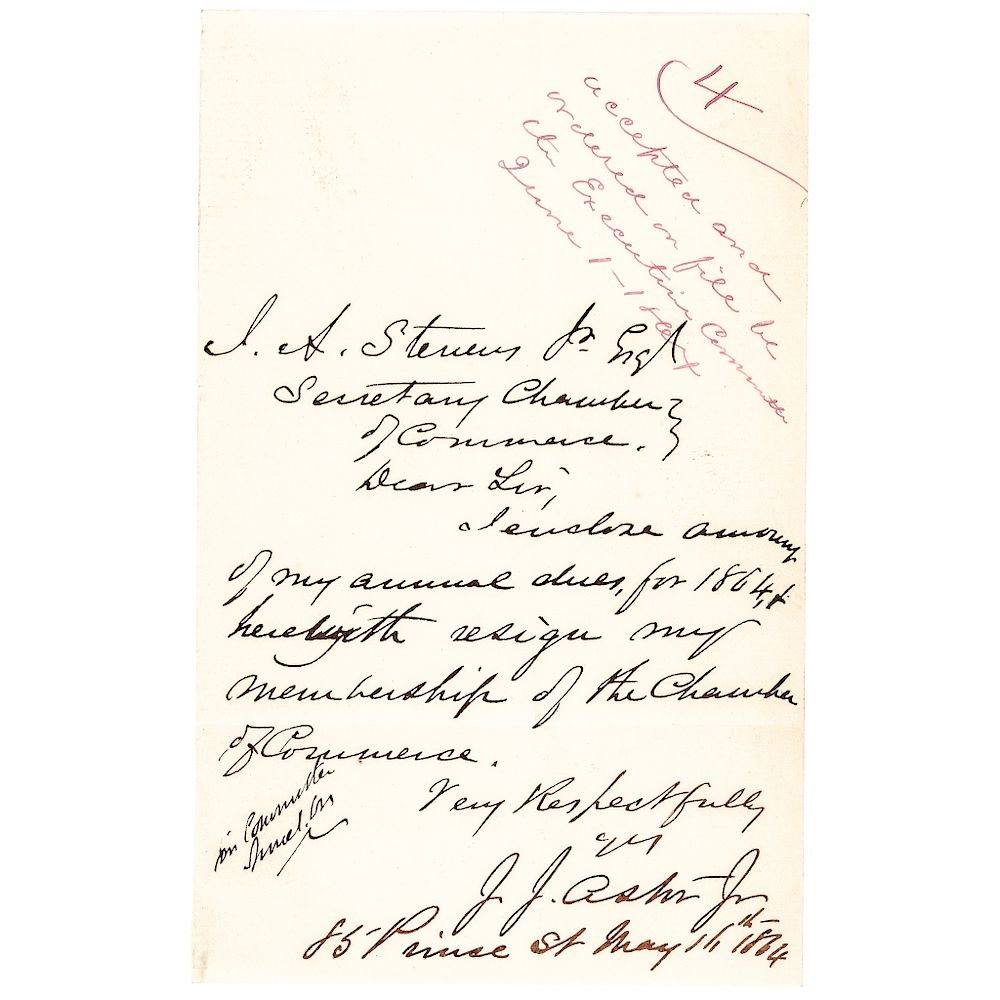 4
accepted and
ordered on file be
the Executive Committee
June 1 - 1864
J. A. Stevens Jr. Esq
Secretary Chamber
of Commerce.
Dear Sir,
I enclose amount
of my annual dues, for 1864, &
herewith resign my
membership of the Chamber
of Commerce.
Very Respectfully
J. J. Astor Jr
85 Prince St May 1864
in Committee